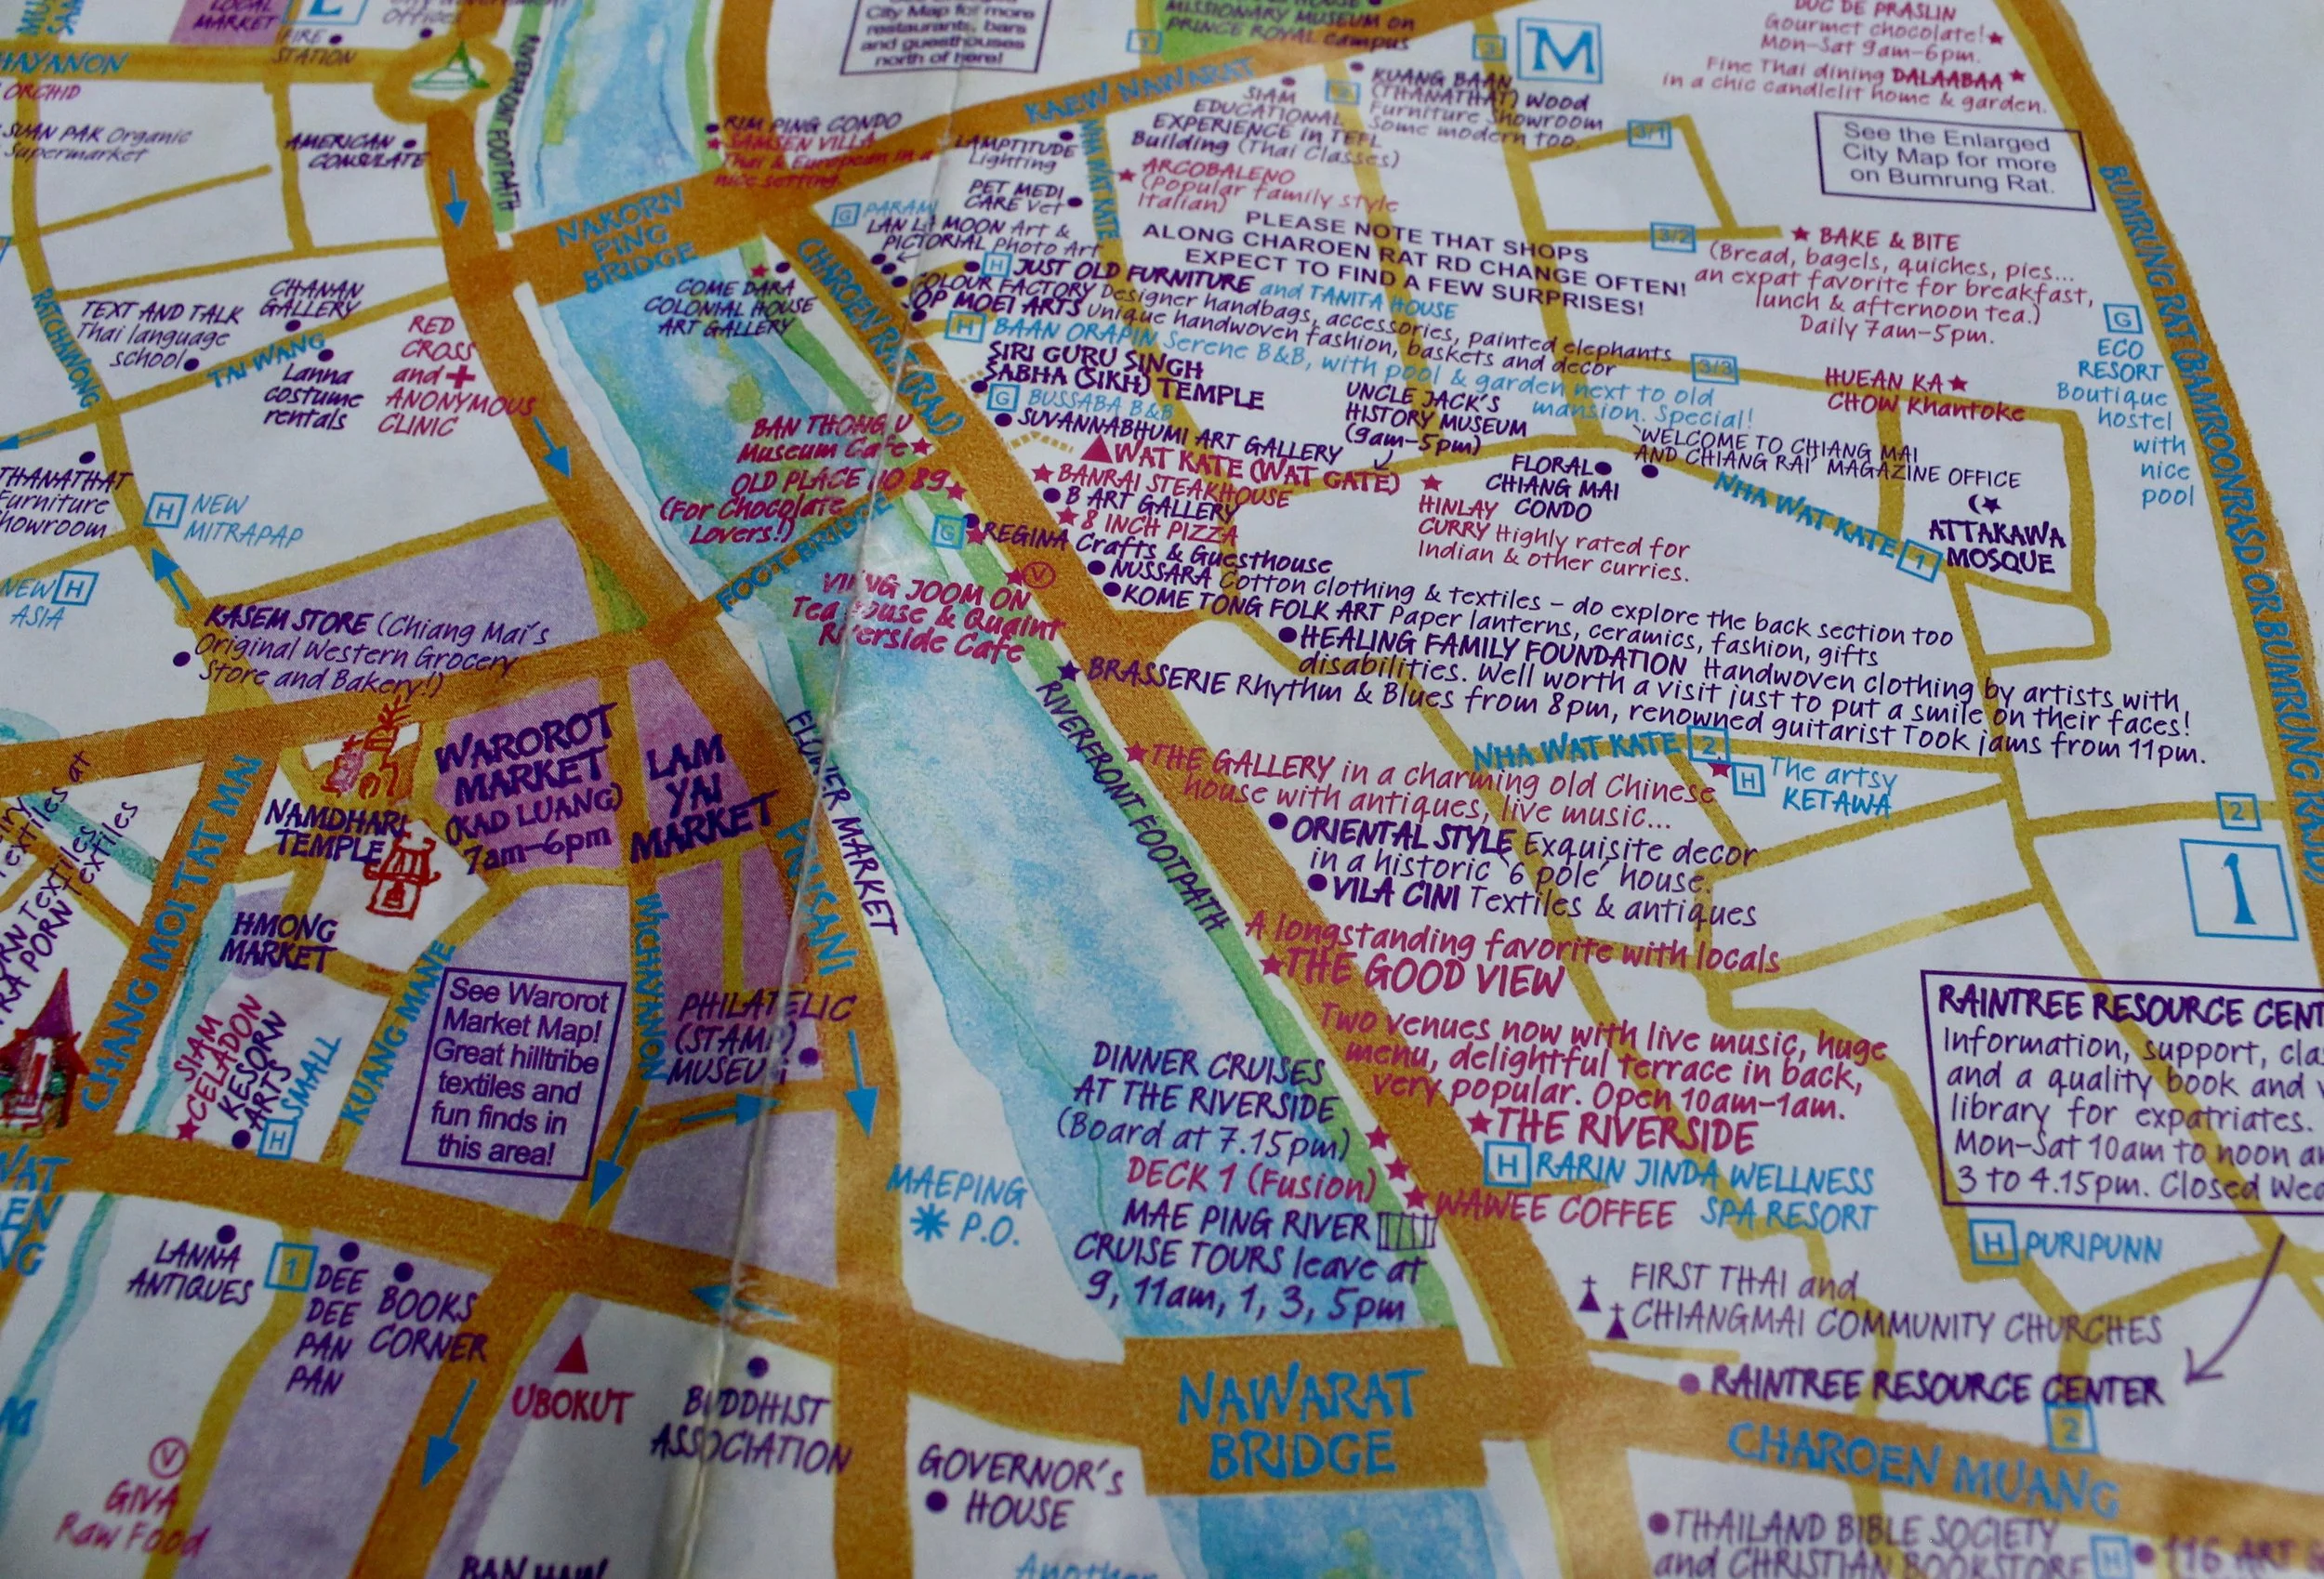 LOCAL
MARKET
FIRE
STATION
City Map for more
restaurants, bars
and guesthouses
north of here!
MISSIONARY MUSEUM on
PRINCE ROYAL campus
3
M
DUC DE PRASLIN
Gourmet chocolate!
Mon-Sat 9am-6pm.
Fine Thai dining DALAABAA
in a chic candlelit home & garden.
See the Enlarged
City Map for more
on Bumrung Rat.
ORCHID
SUAN PAK Organic
Supermarket
AMERICAN
CONSULATE
RIVERFRONT FOOTPATH
RIM PING CONDO
SAMSEN VILLA
Thai & European in a
nice setting.
KAEW NAWARAT
LAMPTITUDE
Lighting
PET MEDI
CARE Vet
NHA WAT KATE
SIAM
EDUCATIONAL
EXPERIENCE in TEFL
Building (Thai Classes)
KUANG BAAN
(THANATHAT) Wood
Furniture Showroom
Some modern too.
3/1
ARCOBALENO
(Popular family style
Italian)
NAKORN
PING
BRIDGE
G PARAMI
LAN LA MOON Art &
PICTORIAL Photo Art
PLEASE NOTE THAT SHOPS
ALONG CHAROEN RAT RD CHANGE OFTEN!
EXPECT TO FIND A FEW SURPRISES!
3/2
BAKE & BITE
(Bread, bagels, quiches, pies...
an expat favorite for breakfast,
lunch & afternoon tea.)
Daily 7am-5pm.
BUMRUNG RAT (BAMROONRASD OR BUMTRUNG
COME DARA
COLONIAL HOUSE
ART GALLERY
CHAROEN RAT (RAJ)
H JUST OLD FURNITURE and TANITA HOUSE
COLOUR FACTORY Designer handbags, accessories, painted elephants
OP MOEI ARTS Unique handwoven fashion, baskets and decor
H BAAN ORAPIN Serene B&B, with pool & garden next to old
mansion. Special!
3/3
SIRI GURU SINGH
SABHA (SIKH) TEMPLE
G BUSSABA B&B
SUVANNABHUMI ART GALLERY
UNCLE JACK'S
HISTORY MUSEUM
(9am-5pm)
HUEAN KA
CHOW Khantoke
G
ECO
RESORT
Boutique
hostel
with
nice
pool
RATCHWONG
TEXT AND TALK
Thai language
school
CHANAN
GALLERY
TAI WANG
Lanna
costume
rentals
RED
CROSS
and
ANONYMOUS
CLINIC
WAT KATE (WAT GATE)
BANRAI STEAKHOUSE
B ART GALLERY
8 INCH PIZZA
G REGINA Crafts & Guesthouse
NUSSARA Cotton clothing & textiles - do explore the back section too
KOME TONG FOLK ART Paper lanterns, ceramics, fashion, gifts
HEALING FAMILY FOUNDATION Handwoven clothing by artists with
disabilities. Well worth a visit just to put a smile on their faces!
BRASSERIE Rhythm & Blues from 8pm, renowned guitarist Took jams from 11pm.
HINLAY
CURRY Highly rated for
Indian & other curries.
FLORAL
CHIANG MAI
CONDO
'WELCOME TO CHIANG MAI
AND CHIANG RAI' MAGAZINE OFFICE
NHA WAT KATE 1
ATTAKAWA
MOSQUE
BAN THONG U
Museum Cafe
OLD PLACE NO 89
(For Chocolate
Lovers!)
FOOT BRIDGE
VIENG JOOM ON
Tea House & Quaint
Riverside Cafe
V
THANATHAT
Furniture
Showroom
H NEW
MITRAPAP
NEW H
ASIA
KASEM STORE (Chiang Mai's
Original Western Grocery
Store and Bakery!)
THE GALLERY in a charming old Chinese
house with antiques, live music...
NHA WAT KATE 2
H The artsy
KETAWA
ORIENTAL STYLE Exquisite decor
in a historic '6 pole' house.
VILA CINI Textiles & antiques
2
1
WAROROT
MARKET
(KAD LUANG)
7am-6pm
LAM
YAI
MARKET
NAMDHARI
TEMPLE
HMONG
MARKET
CHANG MOI TAT MAI
FLOWER MARKET
PRAISANI
RIVERFRONT FOOTPATH
WICHAYANON
KUANG MANE
A longstanding favorite with locals
THE GOOD VIEW
Two venues now with live music, huge
menu, delightful terrace in back,
very popular. Open 10am-1am.
THE RIVERSIDE
H RARIN JINDA WELLNESS
SPA RESORT
WAWEE COFFEE
RAINTREE RESOURCE CENT
Information, support, cla
and a quality book and
library for expatriates.
Mon-Sat 10am to noon a
3 to 4.15pm. Closed Wed
See Warorot
Market Map!
Great hilltribe
textiles and
fun finds in
this area!
PHILATELIC
(STAMP)
MUSEUM
SIAM
CELADON
KESORN
ARTS
H SMALL
DINNER CRUISES
AT THE RIVERSIDE
(Board at 7.15pm)
DECK 1 (Fusion)
MAE PING RIVER
CRUISE TOURS leave at
9, 11am, 1, 3, 5pm
MAEPING
P.O.
H PURIPUNN
FIRST THAI and
CHIANGMAI COMMUNITY CHURCHES
RAINTREE RESOURCE CENTER
2
CHAROEN MUANG
LANNA
ANTIQUES
1
DEE
DEE
PAN
PAN
BOOKS
CORNER
UBOKUT
BUDDHIST
ASSOCIATION
NAWARAT
BRIDGE
GOVERNOR'S
HOUSE
V
GIVA
Raw Food
THAILAND BIBLE SOCIETY
and CHRISTIAN BOOKSTORE
H 116 ART
Another